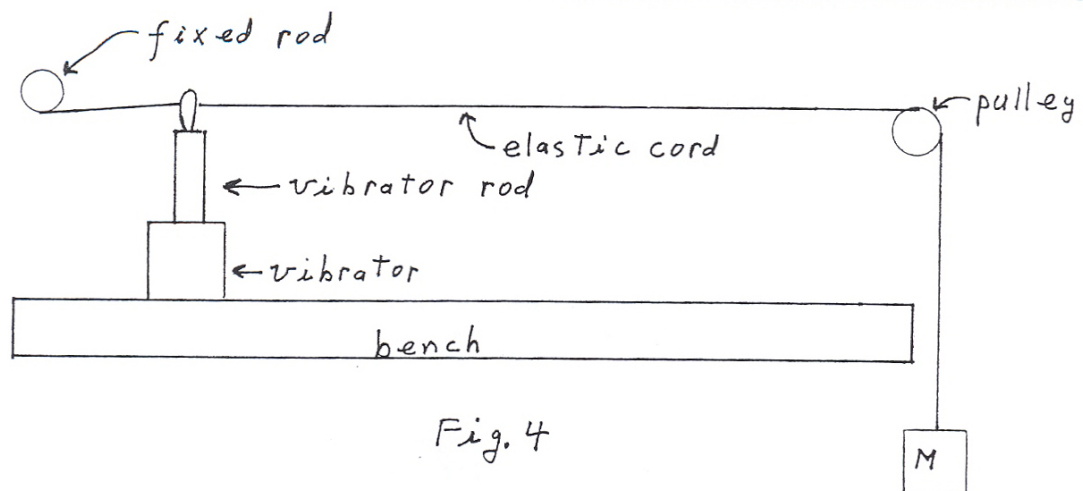 fixed rod
pulley
elastic cord
vibrator rod
vibrator
bench
Fig. 4
M